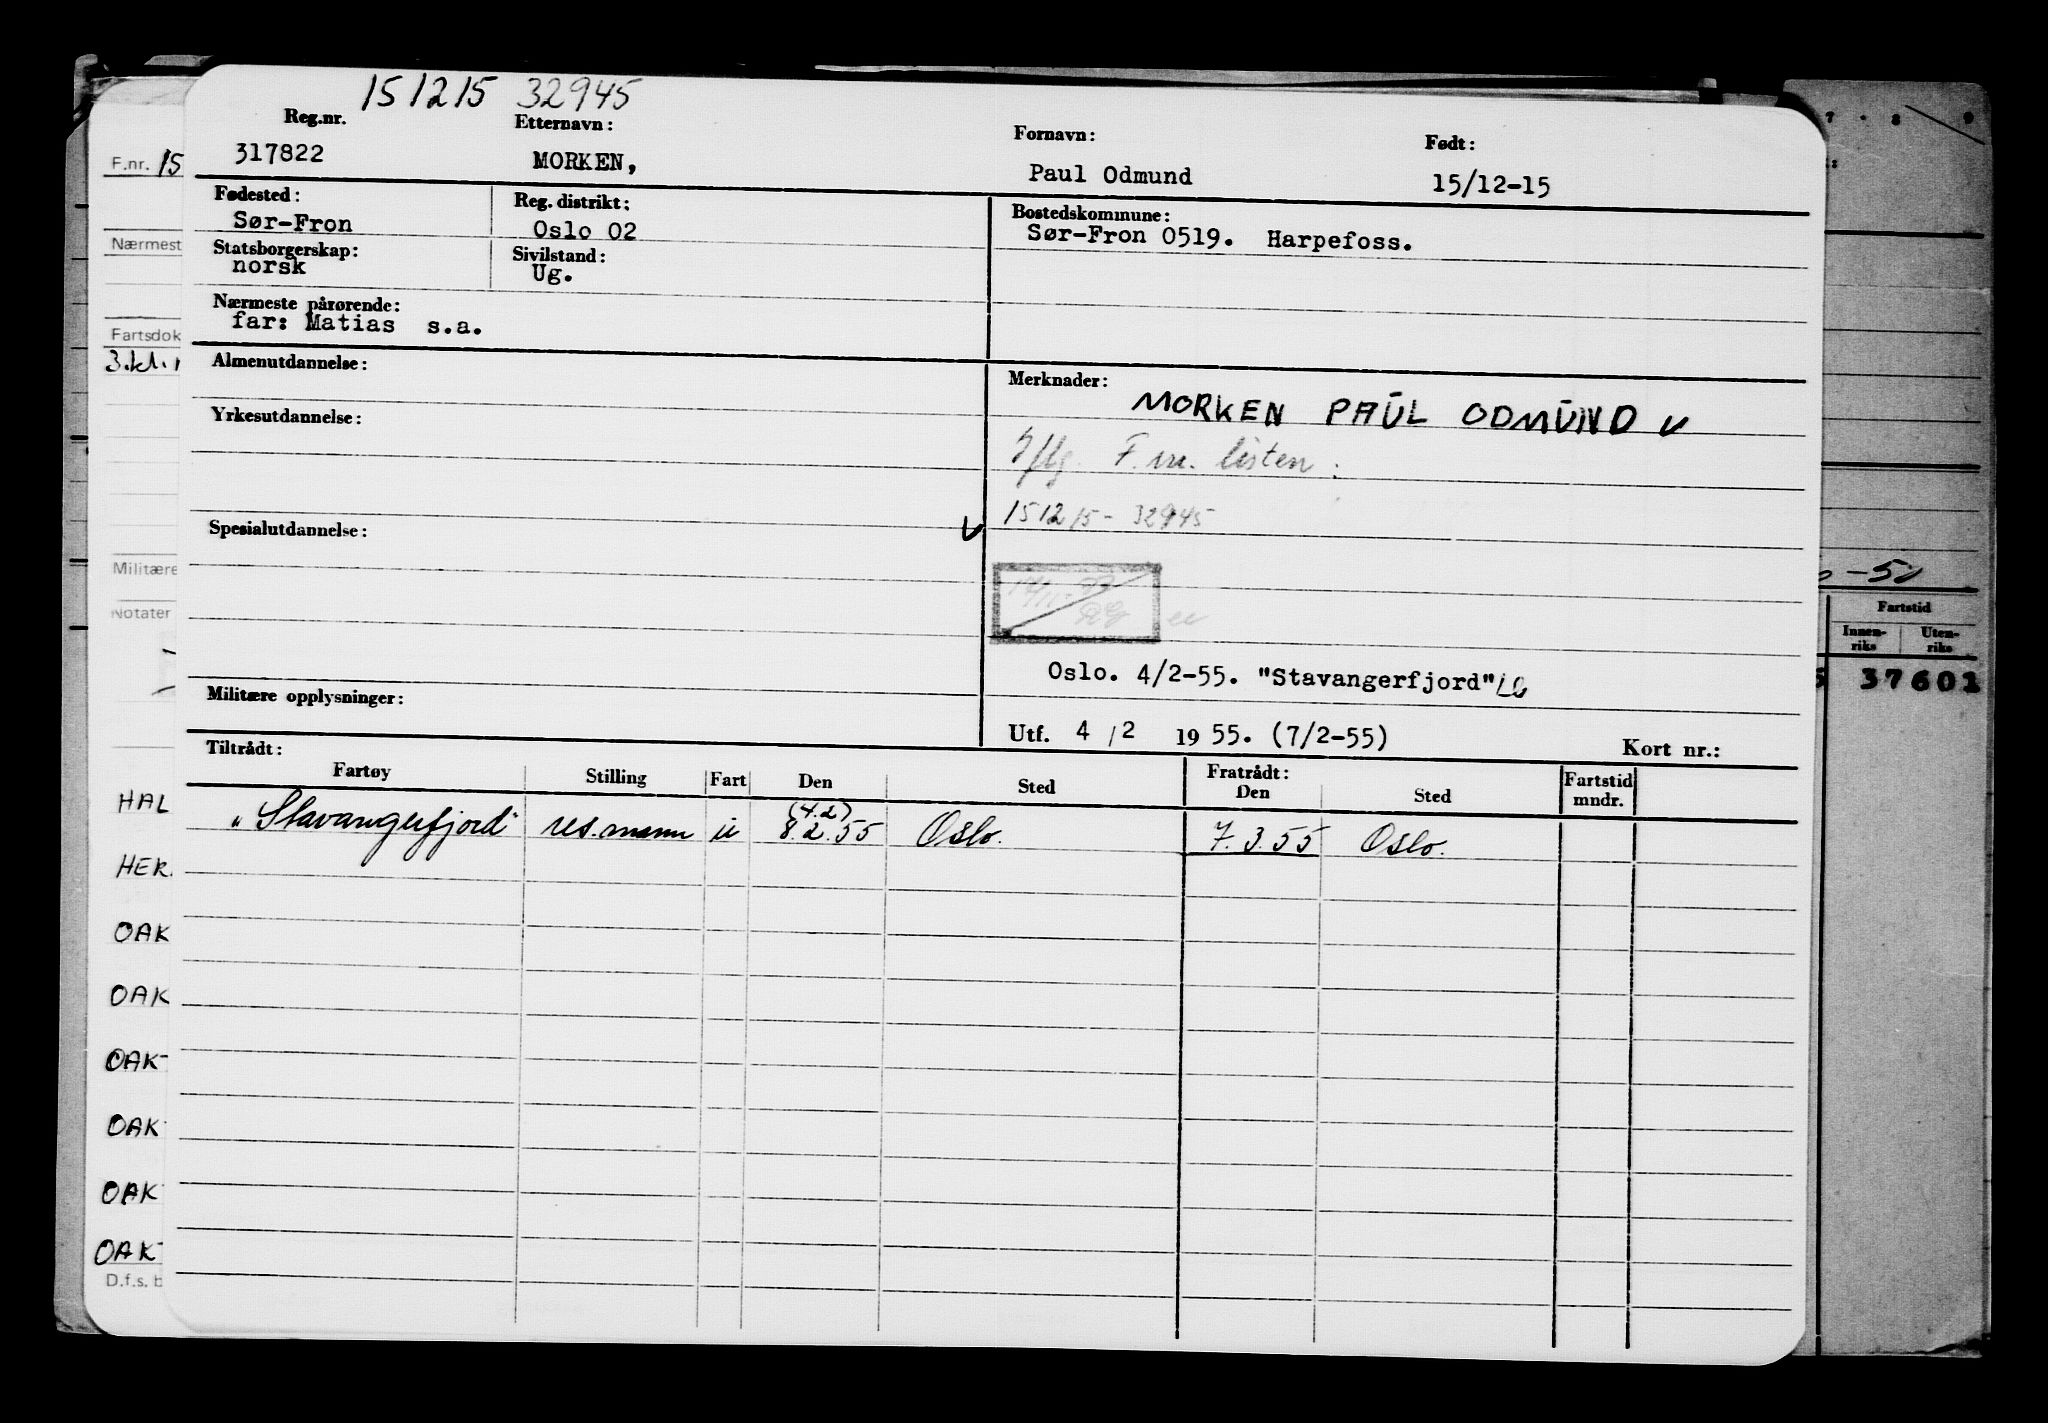 151215 32945
Reg.nr. Etternavn: Fornavn: Født:
317822 MORKEN, Paul Odmund 15/12-15
Fødested: Reg. distrikt: Bostedskommune:
Sør-Fron Oslo 02 Sør-Fron 0519. Harpefoss.
Statsborgerskap: Sivilstand:
norsk Ug.
Nærmeste pårørende:
far: Matias s.a.
Almenutdannelse:
Yrkesutdannelse:
Spesialutdannelse: v
Militære opplysninger:
Merknader:
MORKEN PAUL ODMUND v
Iflg. F.nr. listen:
151215-32945
Oslo. 4/2-55. "Stavangerfjord"
Utf. 4/2 1955. (7/2-55) Kort nr.:
Tiltrådt: Fratrådt:
Fartøy Stilling Fart Den Sted Den Sted Fartstid mndr.
(4.2)
"Stavangerfjord" res.mann u 8.2.55 Oslo. 7.3.55 Oslo.
F.nr. 15
Nærmest
Fartsdok
3.kl.
Militære
Notater
HAL
HER
OAK
OAK
OAK
OAK
OAK
OAK
D.f.s. b
7 8 9
-50
Fartstid
Innen-riks Uten-riks
37601